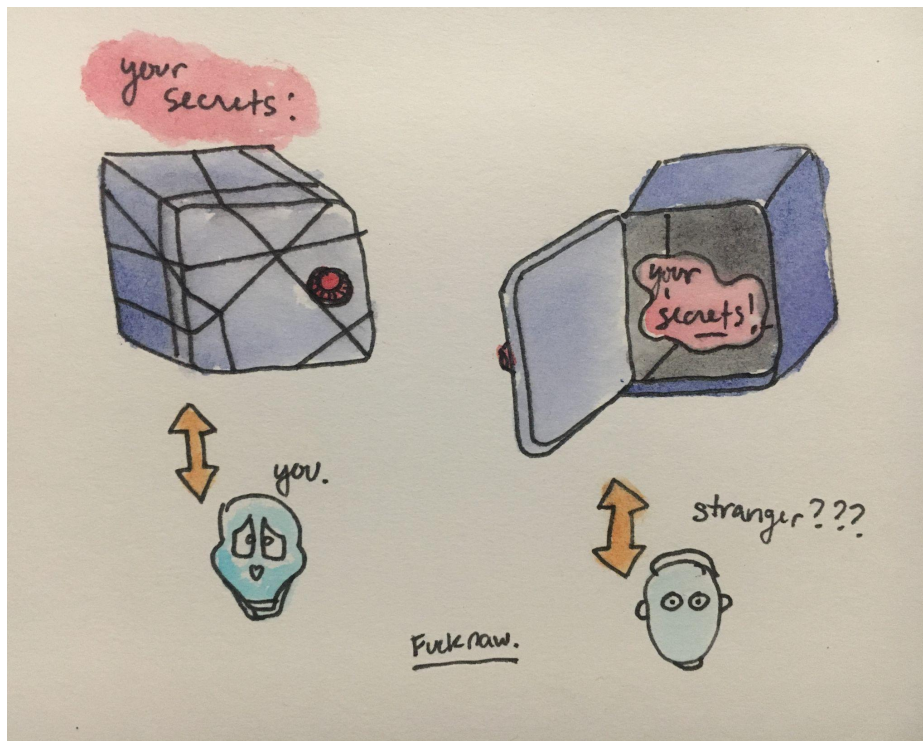 your
secrets:
your
secrets!
you.
stranger???
Fuck naw.